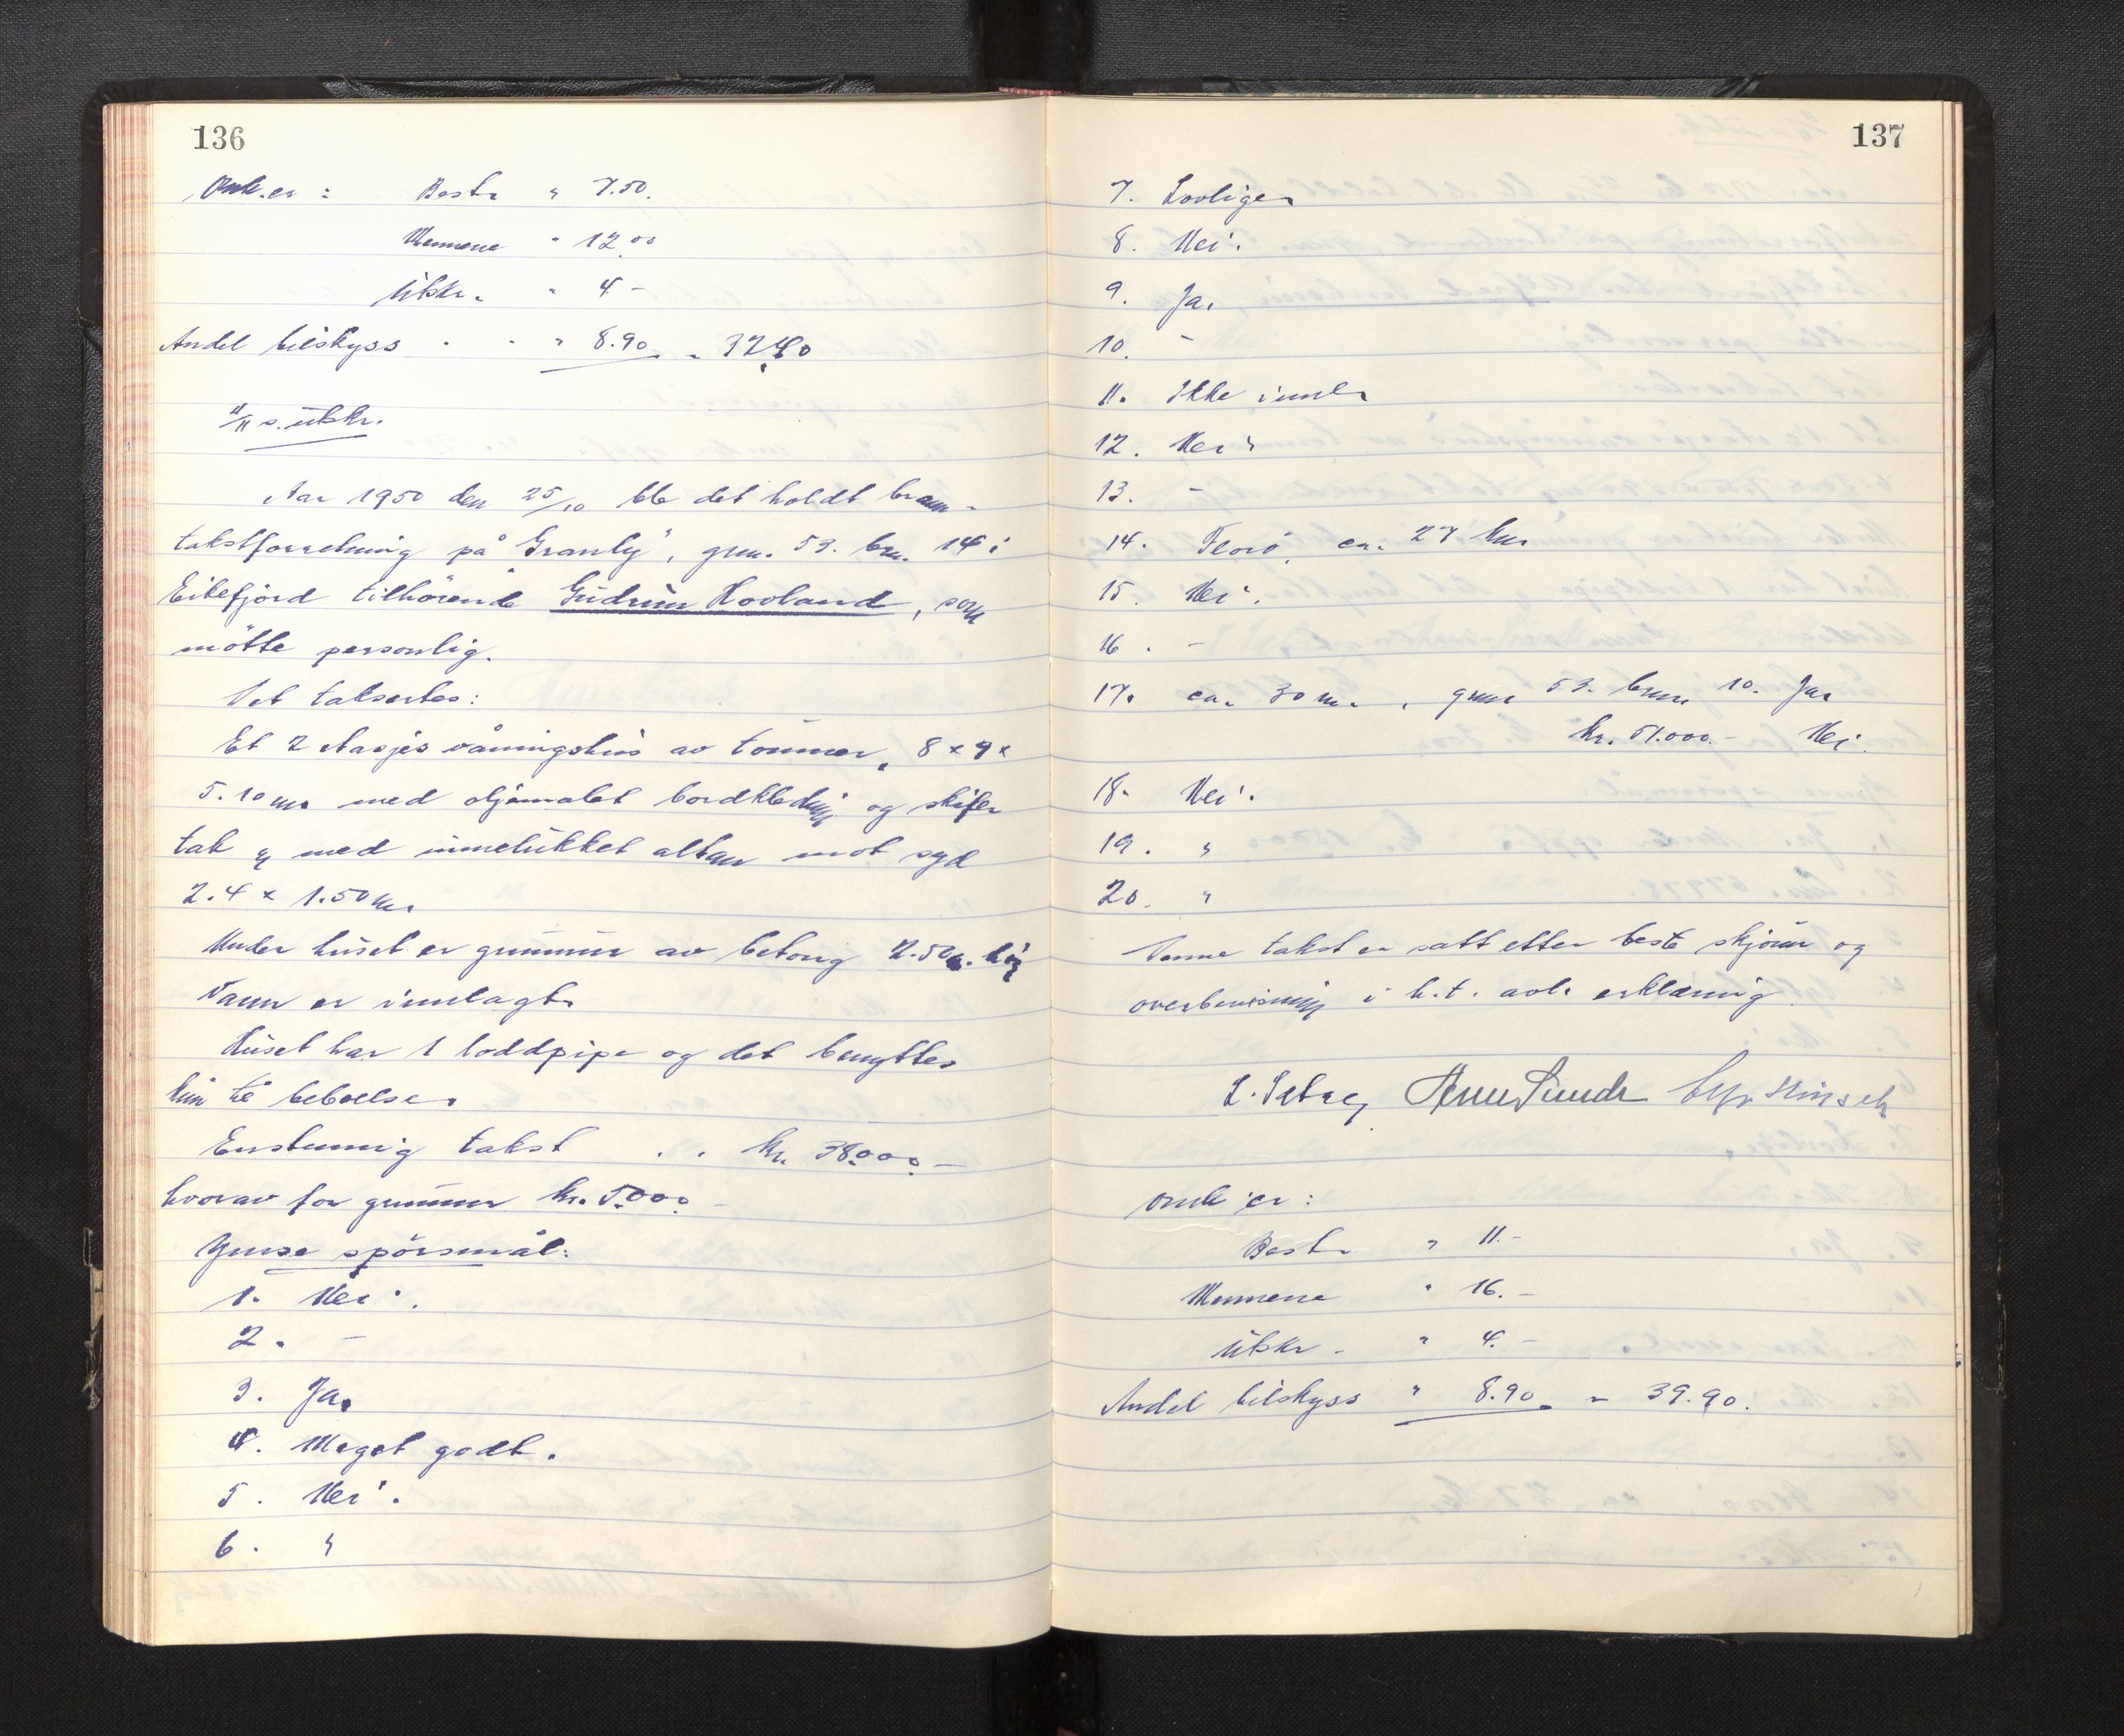 136
Omk.er : Bestr " 7.50.
Mennene " 12.00
Utskr. " 4 –
Andel bilskyss - - " 8.90 = 32.40
11/11 s. utskr.
Aar 1950 den 25/10 ble det holdt brann-
takstforretning på "Granly", gnr. 53. bnr. 14 i
Eikefjord tilhörende Gudrun Hovland, som
mötte personlig.
Det taksertes:
Et 2 etasjes våningshus av tömmer, 8 x 9 x
5.10 m. med oljemalet bordkledning og skifer
tak og med innelukket altan mot syd
2.4 x 1.50 m.
Under huset er grunnmur av betong 2.50 m. höi
Vann er innlagt.
Huset har 1 loddpipe og det benyttes
kun til beboelse.
Enstemmig takst . . kr. 38.000 –
hvorav for grunnmur kr. 5.000 –
Ymse spörsmål:
1. Nei.
2. –
3. Ja.
4. Meget godt.
5. Nei.
6. "
137
7. Lovlige.
8. Nei.
9. Ja.
10. –
11. Ikke innl.
12. Nei.
13. –
14. Florö, ca. 27 km.
15. Nei.
16. –
17. ca. 30 m., gnr 53. bnr. 10. Ja.
kr. 51.000.– Nei.
18. Nei.
19. "
20. "
Denne takst er satt efter beste skjönn og
overbevisning i h.t. avl. erklæring.
L. Sebrg
Omk er :
Bestr " 11.–
Mennene " 16.–
Utskr - " 4.–
Andel bilskyss " 8.90 = 39.90.